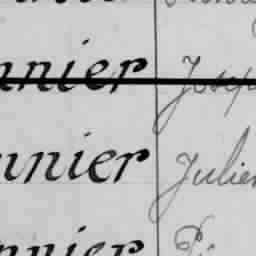 nnier Josep
nnier Julien
nnier